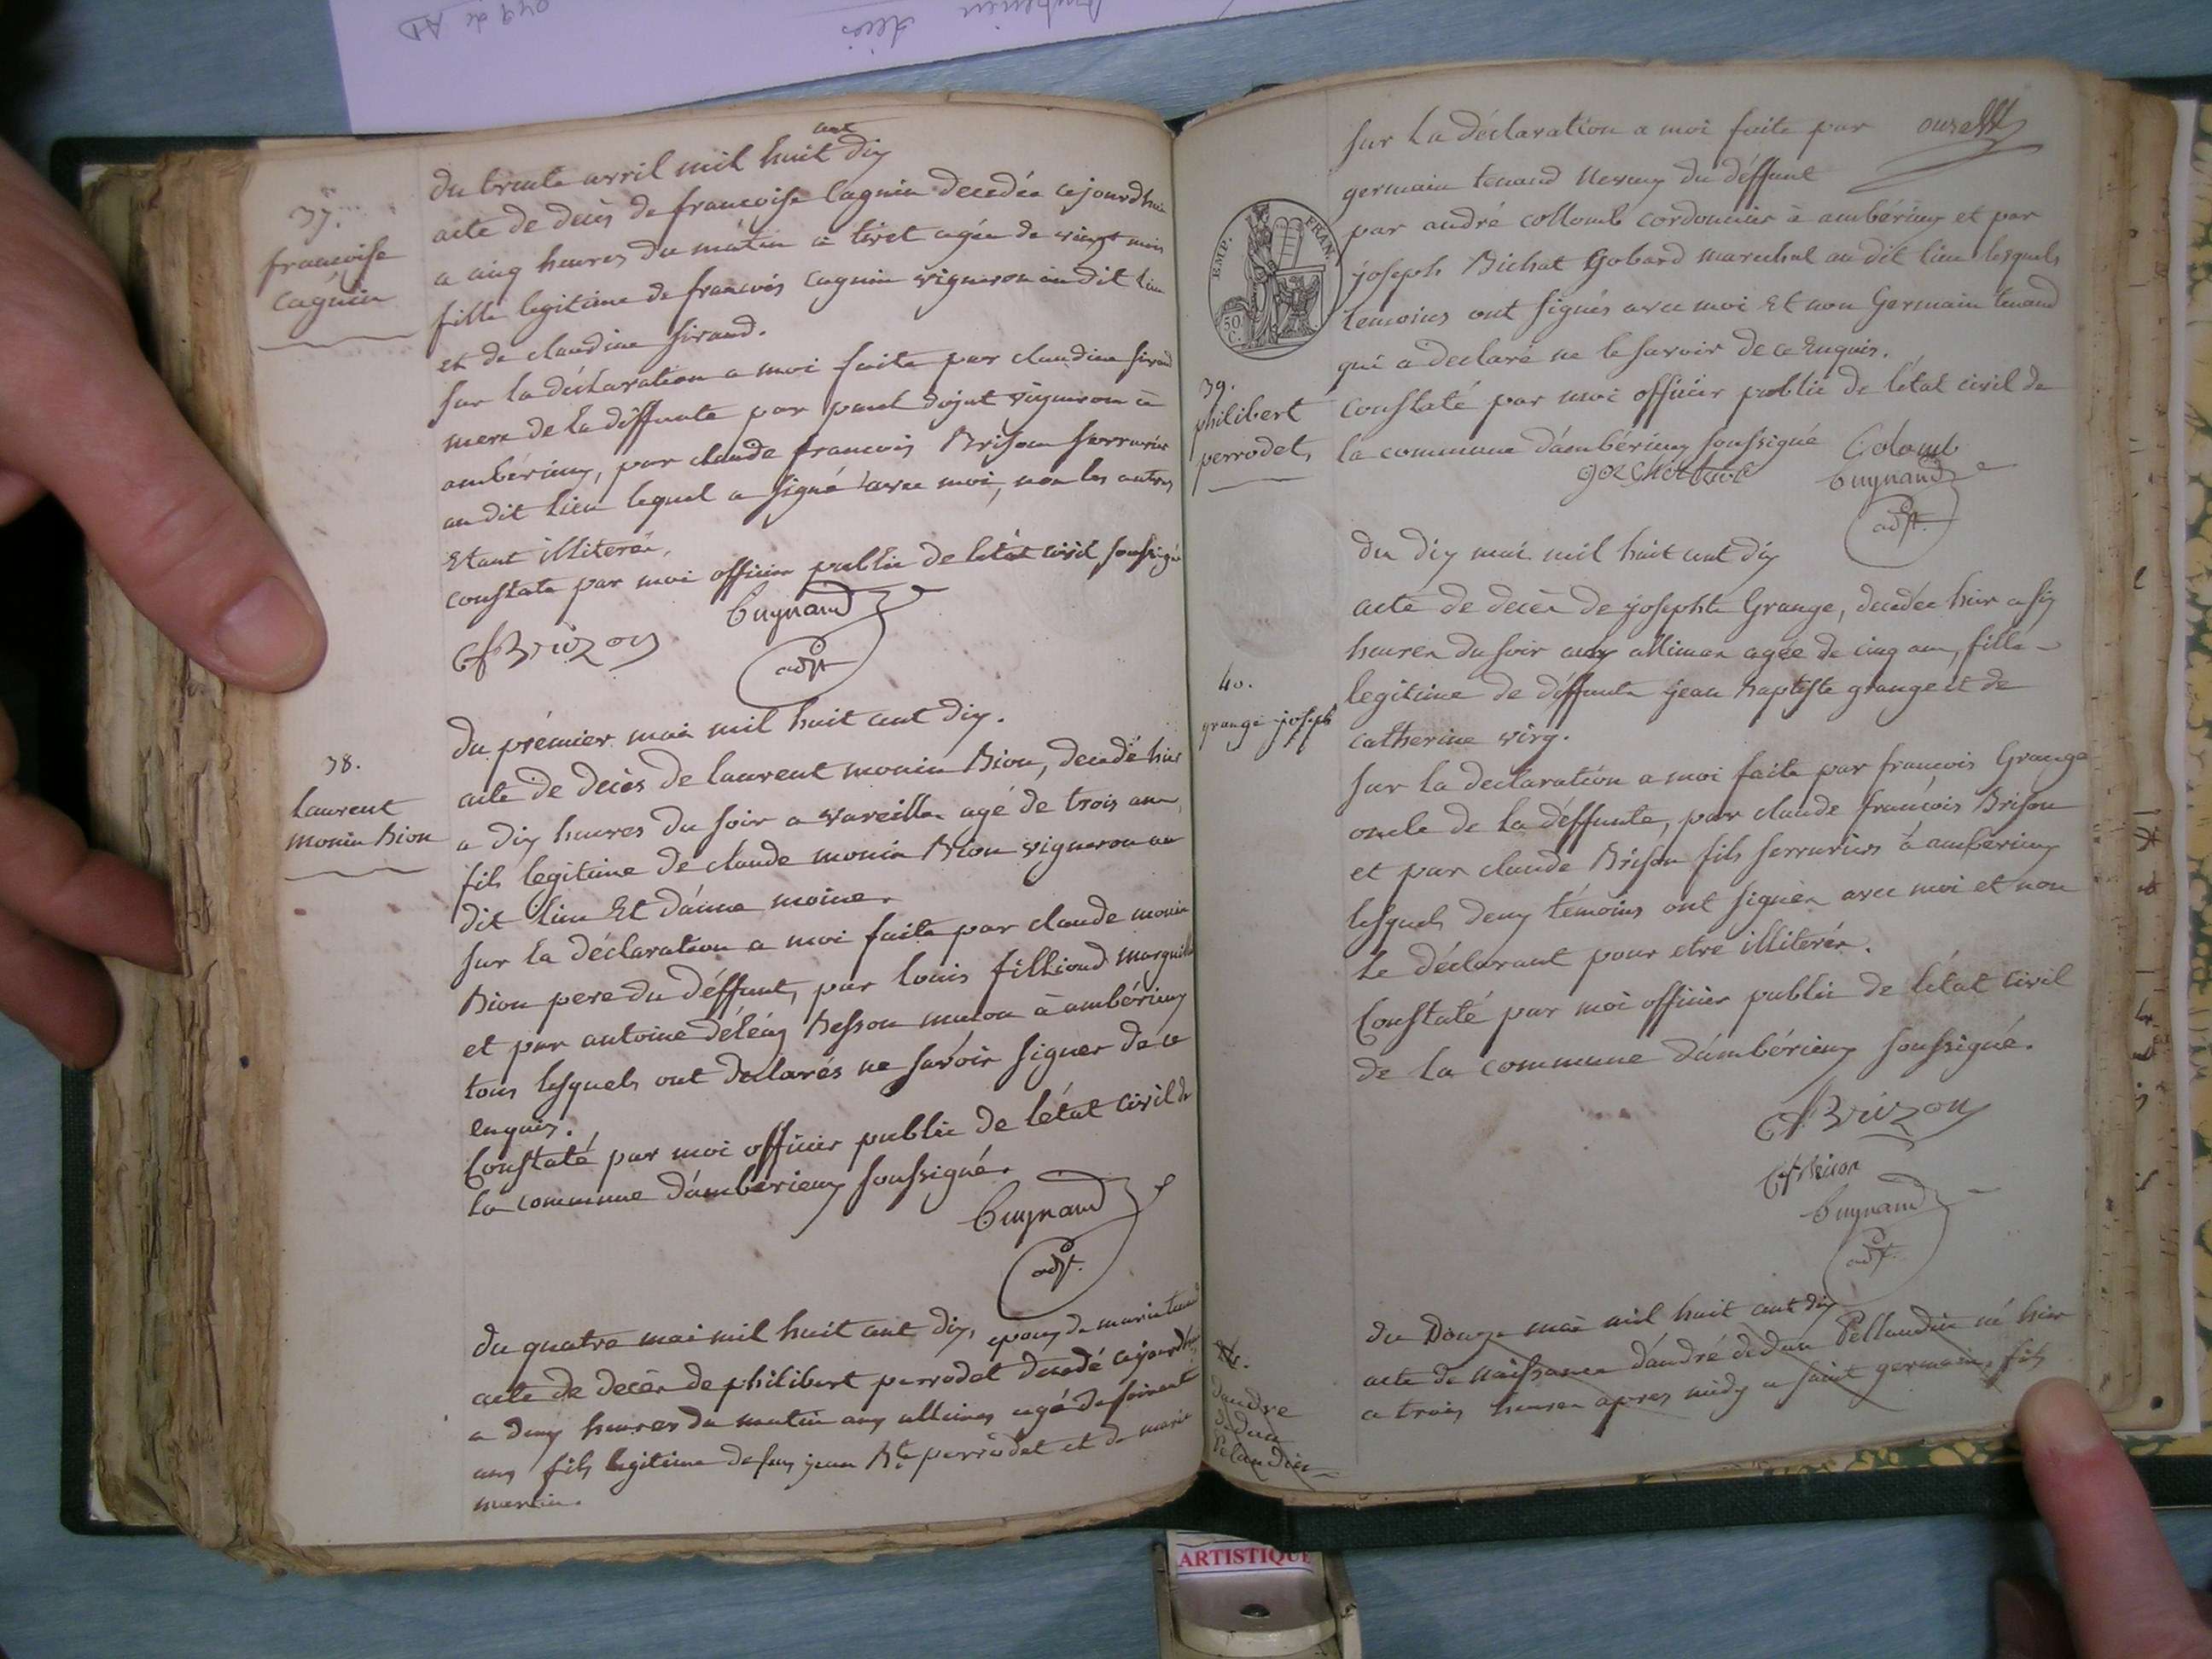 37.
francoise
cagnin
du trente avril mil huit cent dix
acte de decès de francoise Cagnin decedée cejourdhui
a cinq heures du matin a tiret agée de vingt mois
fille legitime de francois cagnin vigneron au dit lieu
et de claudine sirand.
sur la déclaration a moi faite par claudine sirand
mere de la déffunte par paul dojat vigneron a
ambérieux, par claude francois Brison serrurier
au dit lieu lequel a signé avec moi, non les autres
Etant illiterés,
constaté par moi officier public de létat civil soussigné
CfBrizon
Cuynand
adjt
38.
laurent
monin Bion
du prémier mai mil huit cent dix.
acte de decès de laurent monin Bion, decedé hier
a dix heures du soir a vareilles agé de trois ans,
fils legitime de claude monin Bion vigneron au
dit lieu Et d'anne moine.
sur la déclaration a moi faite par claude monin
Bion pere du déffunt, par louis fillioud marguillier
et par antoine Besson macon à ambérieux
tous lesquels ont déclarés ne savoir signer de ce
enquis.
Constaté par moi officier public de létat civil de
la commune d'ambérieux soussigné.
Cuynand
adjt.
du quatre mai mil huit cent dix, epoux de marie tenand
acte de decès de philibert perrodet decedé cejourdhui
a deux heures du matin aux allimes agé de soixante
ans fils legitime de feu jean Bte perrodet et de marie
martin.
EMP. FRAN.
50 C.
39.
philibert
perrodet,
sur la déclaration a moi faite par
germain tenand neveu du déffunt
par andré collomb cordonnier à ambérieux et par
joseph Bichat Gobard marechal au dit lieu lesquels
temoins ont signés avec moi Et non Germain tenand
qui a declaré ne le savoir de ce Enquis.
Constaté par moi officier public de létat civil de
la commune d'ambérieux soussigné
Colomb
Cuynand
adjt.
40.
grange joseph
du dix mai mil huit cent dix
acte de decès de josephte Grange, decedée hier a six
heures du soir aux allimes agée de cinq ans, fille
legitime de deffunts jean Baptiste grange et de
catherine virg.
sur la declaration a moi faite par françois Grange
oncle de la déffunte, par claude françois Brison
et par claude Brison fils serruriers à ambérieux
lesquels deux témoins ont signés avec moi et non
le déclarant pour etre illiterés.
Constaté par moi officier public de létat civil
de la commune d'ambérieux soussigné.
CfBrizon
Cuynand
adjt.
dandre
dedun
Pelandin
du Douze mai mil huit cent dix
acte de naissance d'andré dedun Pellandin né hier
a trois heures apres midy a saint germain, fils
ARTISTIQUE